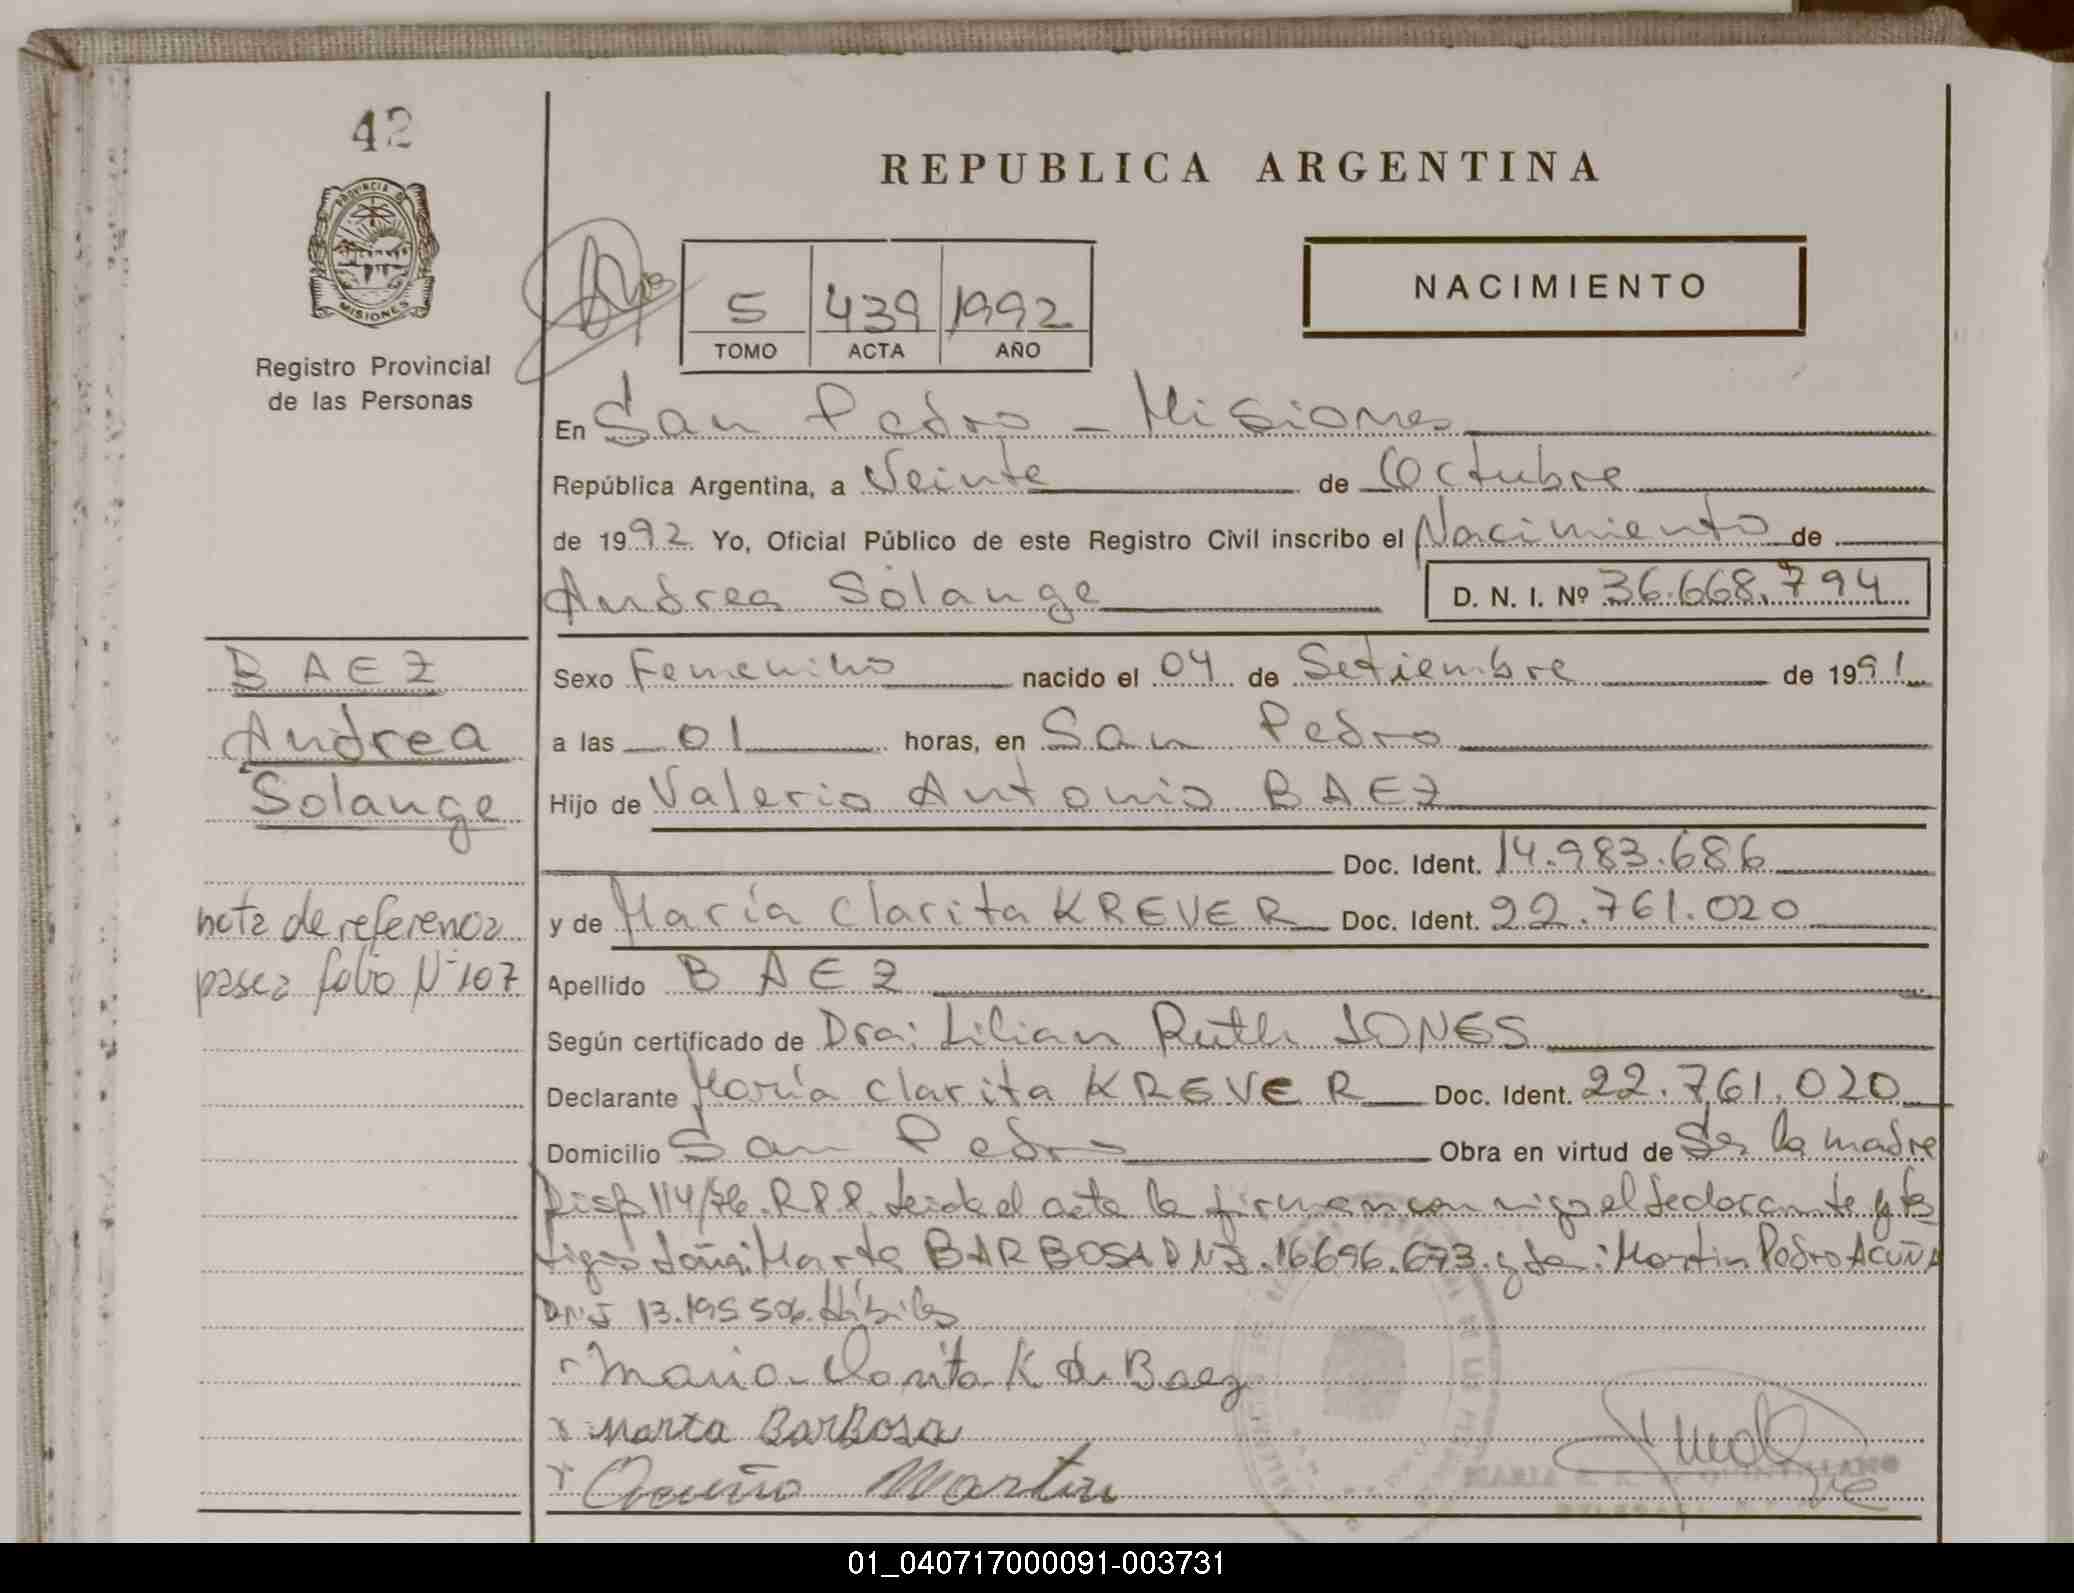 42
PROVINCIA DE
MISIONES
Registro Provincial
de las Personas
REPUBLICA ARGENTINA
5 439 1992
TOMO ACTA AÑO
NACIMIENTO
En San Pedro - Misiones
República Argentina, a Veinte de Octubre
de 1992 Yo, Oficial Público de este Registro Civil inscribo el Nacimiento de
Andrea Solange D. N. I. Nº 36.668.794
BAEZ
Andrea
Solange
nota de referencia
pasea folio Nº 107
Sexo Femenino nacido el 04 de Setiembre de 1991
a las 01 horas, en San Pedro
Hijo de Valerio Antonio BAEZ
Doc. Ident. 14.983.686
y de María Clarita KREVER Doc. Ident. 22.761.020
Apellido BAEZ
Según certificado de Dra: Lilian Ruth JONES
Declarante María Clarita KREVER Doc. Ident. 22.761.020
Domicilio San Pedro Obra en virtud de Ser la madre
Disp 114/76. R.P.P. Leida el acta la firman conmigo el declarante y tes
tigos doña: Marta BARBOSA DNI. 16.696.673. y don: Martin Pedro ACUÑA
DNI 13.195.506. Hábiles
Maria Clarita K de Baez
Marta Barbosa
Acuña Martin
01_040717000091-003731